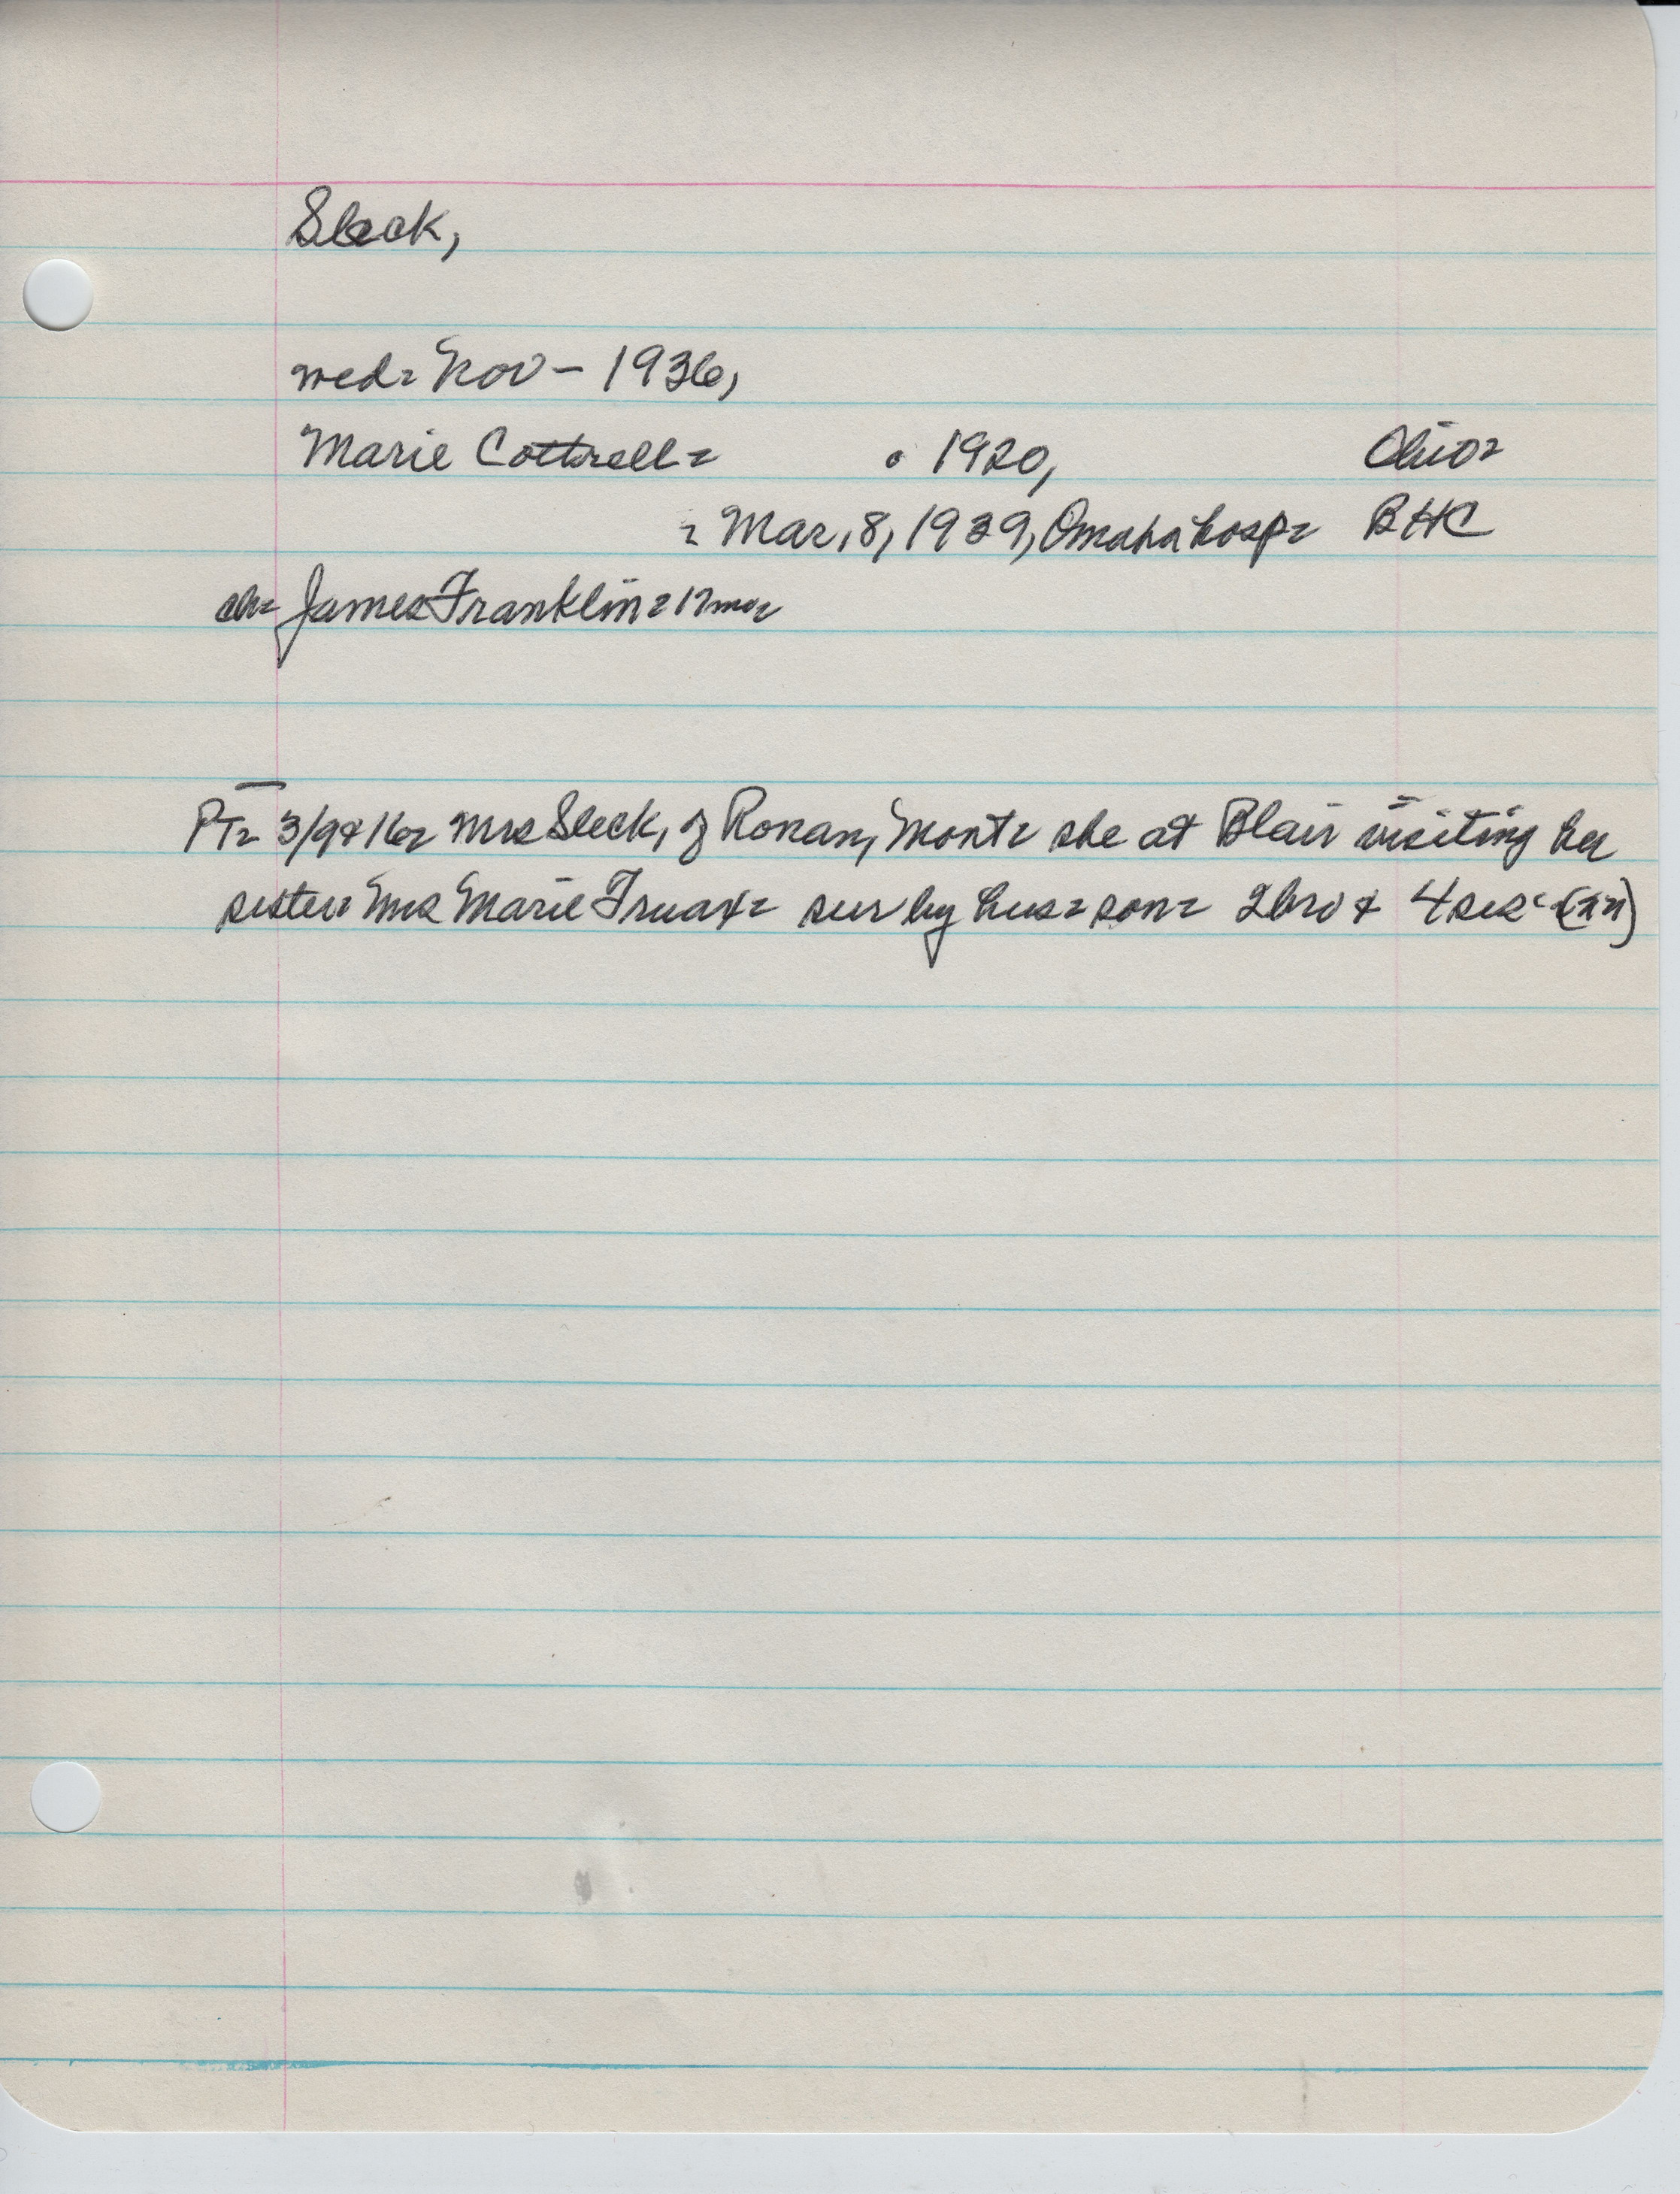 Sleck,
wed= Nov - 1936,
Marie Cottrell= ° 1920, Ohio=
= Mar, 8, 1939, Omaha hosp= BHC
ch= James Franklin= 17mo=
PT= 3/9&16= Mrs Sleck, of Ronan, Mont= she at Blair visiting her
sister= Mrs Marie Truax= sur by hus= son= 2bro & 4sis=